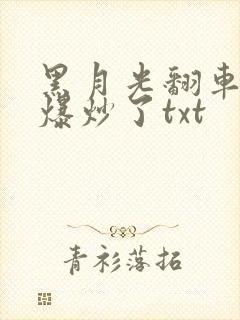 黑月光翻車
爆炒了txt
青衫落拓